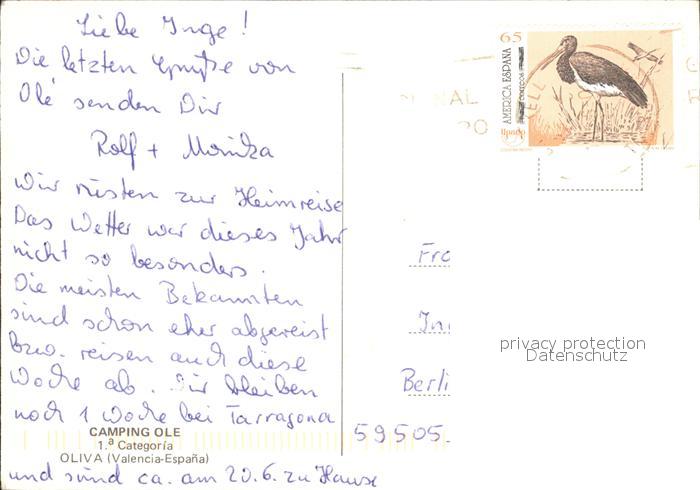 Liebe Inge!
Die letzten Grüße von
Olé senden Dir
Rolf + Monika
Wir rüsten zur Heimreise
Das Wetter war dieses Jahr
nicht so besonders.
Die meisten Bekannten
sind schon eher abgereist
bzw. reisen auch diese
Woche ab. Wir bleiben
noch 1 Woche bei Tarragona
CAMPING OLE
1.ª Categoría
OLIVA (Valencia-España)
und sind ca. am 20.6. zu Hause
65
AMERICA ESPAÑA
correos
Upaep
NAL
Fra
In
Berli
59505
privacy protection
Datenschutz